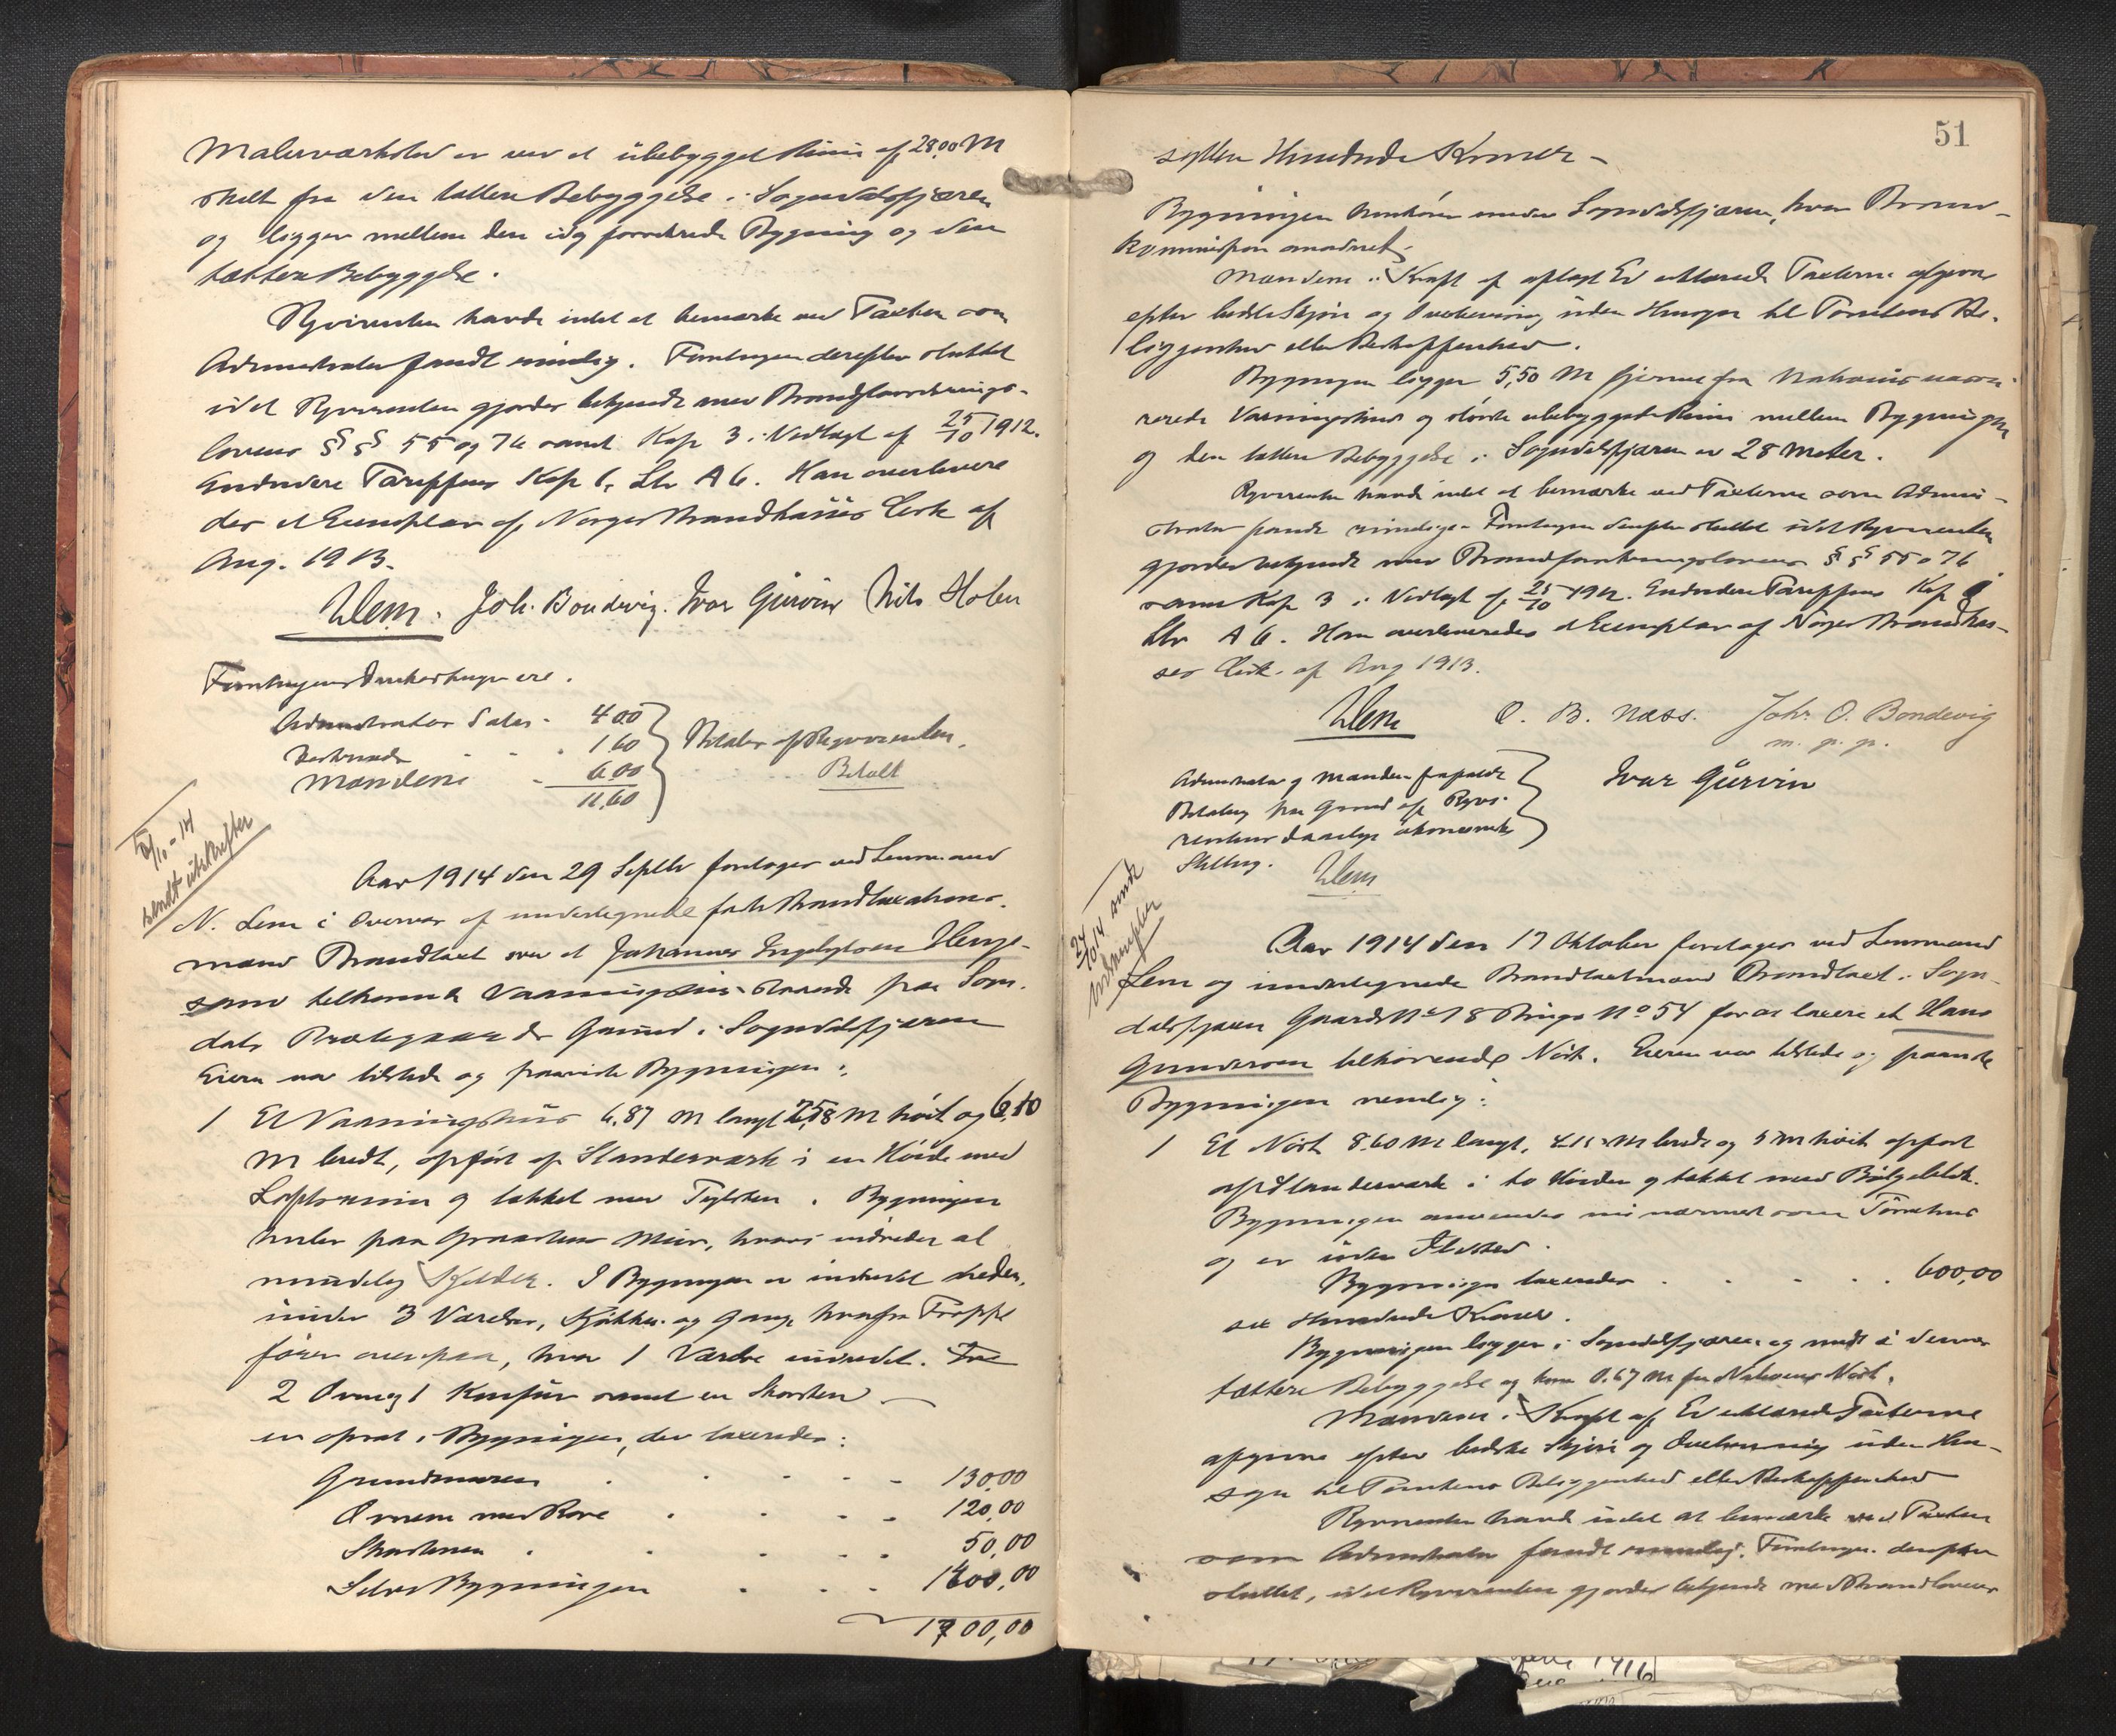 Malerværksted er ved et ubebygget Rum af 28,00 M
skilt fra den tættere Bebyggelse i Sogndalsfjæren
og ligger mellem den idag forretrede Bygning og den
tættere Bebyggelse.
Rekvirenten havde intet at bemærke ved Taxten som
Administrator fandt rimelig. Forretningen derefter sluttet
idet Rekvirenten gjordes bekjendt med Brandforsikrings-
lovens §§ 55 og 76 samt Kap 3 i Vedtægt af 25/10 1912.
Endvidere Tariffens Kap 1, Litr A 6. Han overlevere
des et Exemplar af Norges Brandkasses Cirk af
Aug. 1913.
NLem. Joh. Bondevig. Ivar Gurvin Nils Holen
Forretningens Omkostninger ere.
Administrator Salær - 4 00
1,60 Betales af Rekvirenten.
Mændene - 6,00 Betalt
11,60
5/10 - 14
sendt udskrifter
Aar 1914 den 29 Septbr foretoges ved Lensmand
N. Lem i Overvær af undertegnede faste Brandtaxations-
mænd Brandtaxt over et Johannes Ingebrigtsen
tilhørende Vaaningshus staaende paa Sogn-
dals Prestegaards Grund i Sogndalsfjæren
Eieren var tilstede og paaviste Bygningen:
1 Et Vaaningshus 6,87 M langt M høit og 6,10
M bredt, opført af Standerværk i en Høide med
Loftsrum og tækket med Teglsten. Bygningen
hviler paa Graastens Mur, hvori indredet al
mindelig Kjelder. I Bygningen er indredet neden-
under 3 Værelser, Kjøkken og Gang hvorfra Trappe
fører ovenpaa, hvor 1 Værelse indredet.
2 Ovne og 1 Komfur samt en Skorsten
er opsat i Bygningen, der taxeredes:
Grundmuren - - 130,00
Ovnene med Rør - - 120,00
Skorstenen - - 50,00
Selve Bygningen - 1400,00
1700,00
51
sytten Hundrede Kroner -
Bygningen henhører under Sogndalsfjæren, hvor Brand-
kommission anordnet.
Mændene i Kraft af aflagt Ed erklærede Taxterne afgivne
efter bedste Skjøn og Overbevisning uden Hensyn til Tomtens Be-
liggenhed eller Beskaffenhed.
Bygningen ligger 5,50 M fjernet fra Nabohus
Vaaningshus og største ubebyggede Rum mellem Bygningen
og den tættere Bebyggelse i Sogndalsfjæren er 28 Meter.
Rekvirenten havde intet at bemærke ved Taxterne som Admini-
strator fandt rimelige. Forretningen derefter sluttet idet Rekvirenten
gjordes bekjendt med Brandforsikringslovens §§ 55 o 76
samt Kap 3 i Vedtægt af 25/10 1912. Endvidere Tariffens Kap 1
Litr A 6. Ham overleveredes et Exemplar af Norges Brandkas-
ses Cirk. af Aug 1913.
NLem O. B. Næss. Johs. O. Bondevig
m. p. p.
Administrator og Mændene frafaldt Ivar Gurvin
Betaling paa Grund af Rekvi-
rentens daarlige økonomiske
Stilling. NLem
24/10 14 sendt
udskrifter
Aar 1914 den 17 Oktober foretoges ved Lensmand
Lem og undertegnede Brandtaxtmænd Brandtaxt i Sogn-
dalsfjæren Gaards No 18 Brugs No 54 for at taxere et Hans
Gundersen tilhørende Nøst. Eieren var tilstede og paaviste
Bygningen nemlig:
1 Et Nøst 8,60 M langt, M bredt og 5 M høit opført
af Standerværk i to Høider og tækket med Bølgeblik.
Bygningen anvendes nu nærmest som Tørrehus
og er uden Ildsted.
Bygningen taxeredes - - - 600,00
sex Hundrede Kroner.
Bygningen ligger i Sogndalsfjæren og midt i dennes
tættere Bebyggelse og kun 0.67 M fra Naboens Nøst.
Mændene i Kraft af Ed erklærede Taxterne
afgivne efter bedste Skjøn og Overbevisning uden Hen-
syn til Tomtens Beliggenhed eller Beskaffenhed
Rekvirenten havde intet at bemærke ved Taxten
som Administrator fandt rimelig. Forretningen derefter
sluttet, idet Rekvirenten gjordes bekjendt med Brandlovens